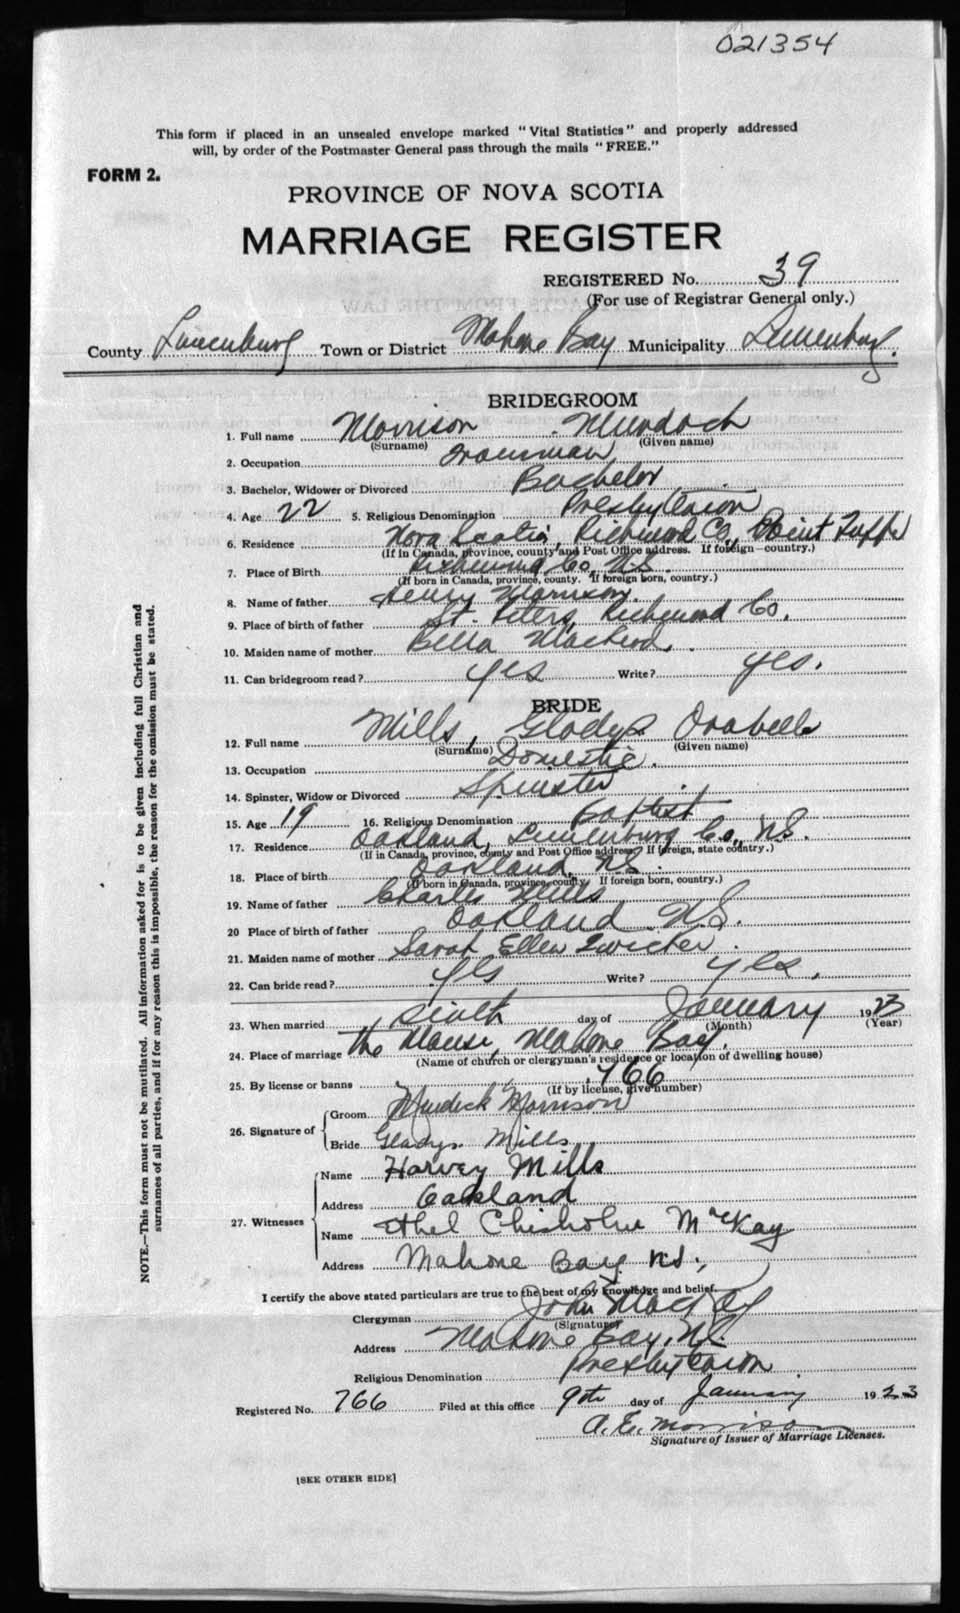 021354
This form if placed in an unsealed envelope marked "Vital Statistics" and properly addressed
will, by order of the Postmaster General pass through the mails "FREE."
FORM 2.
PROVINCE OF NOVA SCOTIA
MARRIAGE REGISTER
REGISTERED No. 39
(For use of Registrar General only.)
County Lunenburg Town or District Mahone Bay Municipality Lunenburg.
BRIDEGROOM
1. Full name Morrison Murdoch
(Surname) (Given name)
2. Occupation
3. Bachelor, Widower or Divorced Bachelor
4. Age 22 5. Religious Denomination Presbyterian
6. Residence Nova Scotia, Richmond Co., Point Tupper
(If in Canada, province, county and Post Office address. If foreign—country.)
7. Place of Birth Richmond Co. N.S.
(If born in Canada, province, county. If foreign born, country.)
8. Name of father Henry Morrison
9. Place of birth of father St. Peters, Richmond Co.
10. Maiden name of mother Bella MacLeod.
11. Can bridegroom read? yes Write? yes.
BRIDE
12. Full name Mills, Gladys Orabelle
(Surname) (Given name)
13. Occupation Domestic.
14. Spinster, Widow or Divorced Spinster
15. Age 19 16. Religious Denomination Baptist
17. Residence Oakland, Lunenburg Co., N.S.
(If in Canada, province, county and Post Office address. If foreign, state country.)
18. Place of birth Oakland, N.S.
(If born in Canada, province, county. If foreign born, country.)
19. Name of father Charles Mills
20 Place of birth of father Oakland N.S.
21. Maiden name of mother Sarah Ellen Zwicker.
22. Can bride read? yes Write? yes.
23. When married sixth day of January 1923
(Month) (Year)
24. Place of marriage the Manse, Mahone Bay.
(Name of church or clergyman's residence or location of dwelling house)
25. By license or banns 766
(If by license, give number)
26. Signature of Groom Murdick Morrison
Bride Gladys Mills
27. Witnesses Name Harvey Mills
Address Oakland
Name Ethel Chisholm McKay
Address Mahone Bay N.S.
I certify the above stated particulars are true to the best of my knowledge and belief.
Clergyman John MacKay
(Signature)
Address Mahone Bay, N.S.
Religious Denomination Presbyterian
Registered No. 766 Filed at this office 9th day of January 1923
A. E. Morrison
Signature of Issuer of Marriage Licenses.
[SEE OTHER SIDE]
NOTE.—This form must not be mutilated. All information asked for is to be given including full Christian and
surnames of all parties, and if for any reason this is impossible, the reason for the omission must be stated.